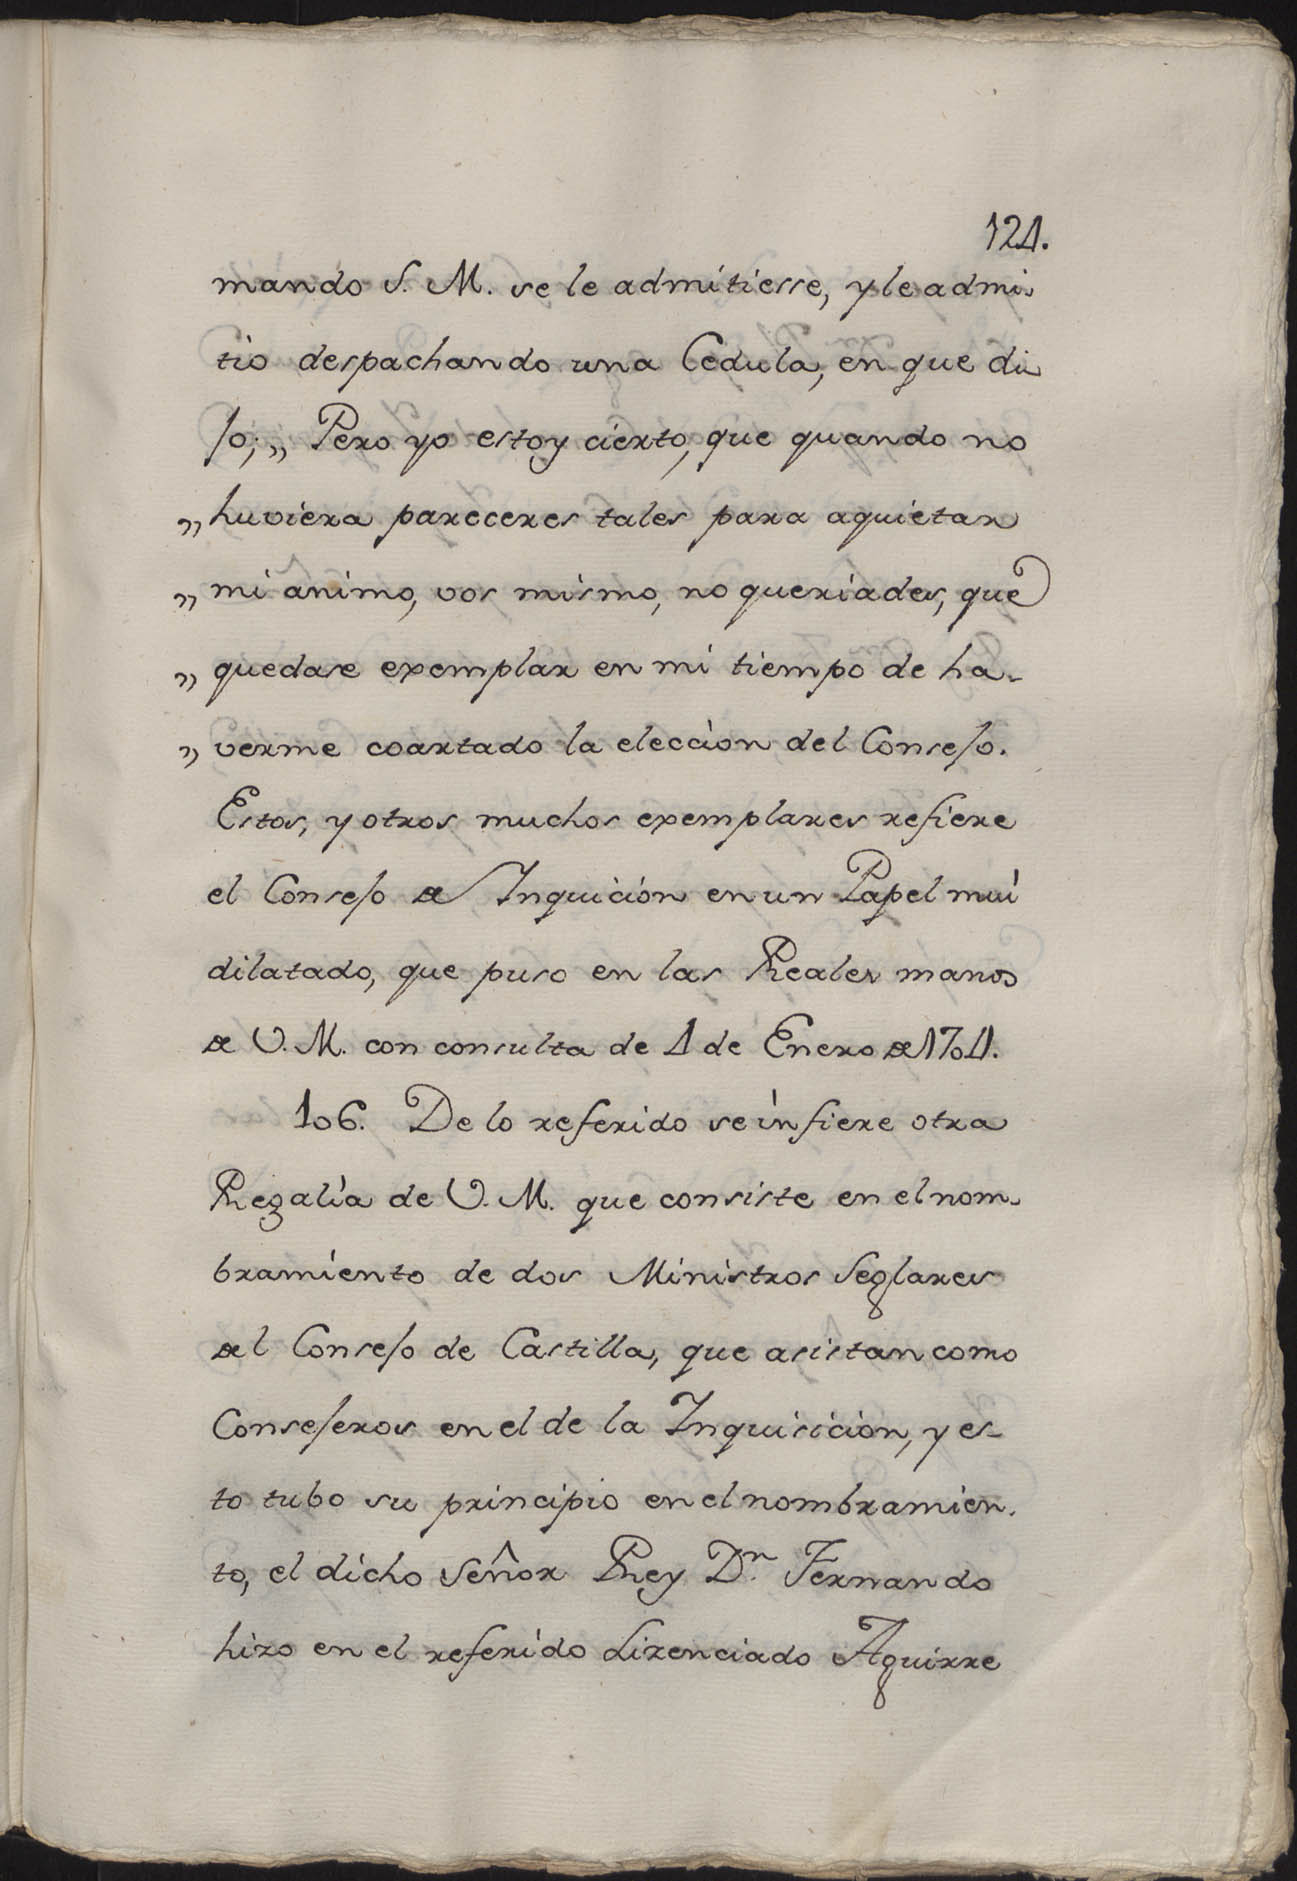 124.
mando S. M. se le admitiesse, y le admi-
tio despachando una Cedula, en que di
jo; „ Pero yo estoy cierto, que quando no
„ huviera pareceres tales para aquietar
„ mi animo, vos mismo, no queriades, que
„ quedase exemplar en mi tiempo de ha-
„ verme coartado la eleccion del Consejo.
Estos, y otros muchos exemplares refiere
el Consejo de Inquicion en un Papel mui
dilatado, que puso en las Reales manos
de V. M. con consulta de 4 de Enero de 1704.
106. De lo referido se infiere otra
Regalía de V. M. que consiste en el nom-
bramiento de dos Ministros Seglares
del Consejo de Castilla, que asistan como
Consejeros en el de la Inquisicion, y es-
to tubo su principio en el nombramien-
to, el dicho Señor Rey Dn. Fernando
hizo en el referido Lizenciado Aguirre